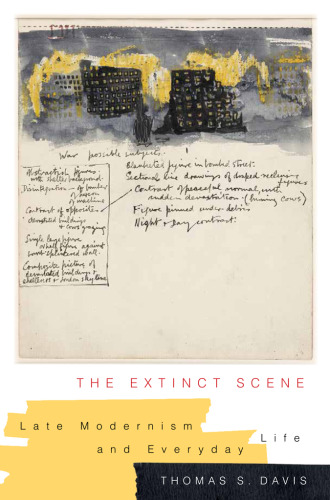 War possible subjects.
figures
with shelter background
Disintegration — of bomber
of person
of machine
Contrast of opposites
buildings
& cows grazing
Single large figure
or half figure against
bomb splintered wall.
Composite picture of
devastated buildings &
& London skyline
Blanketed figure in bombed street.
Sectional line drawings of draped reclining
figures
Contrast of peaceful normal, with
sudden devastation. (burning cows)
Figure pinned under debris
Night & day contrast.
THE EXTINCT SCENE
Late Modernism
and Everyday
Life
THOMAS S. DAVIS